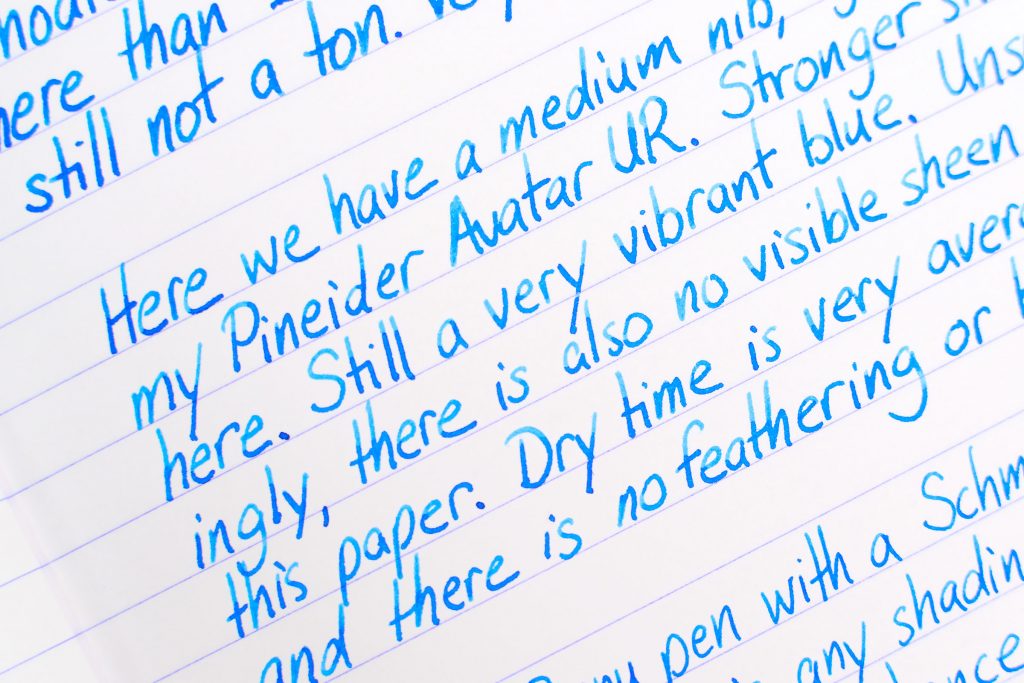 here than
still not a ton.
Here we have a medium nib,
my Pineider Avatar UR. Stronger
here. Still a very vibrant blue. Uns
ingly, there is also no visible sheen
this paper. Dry time is very aver
and there is no feathering or
pen with a Schm
any shadin